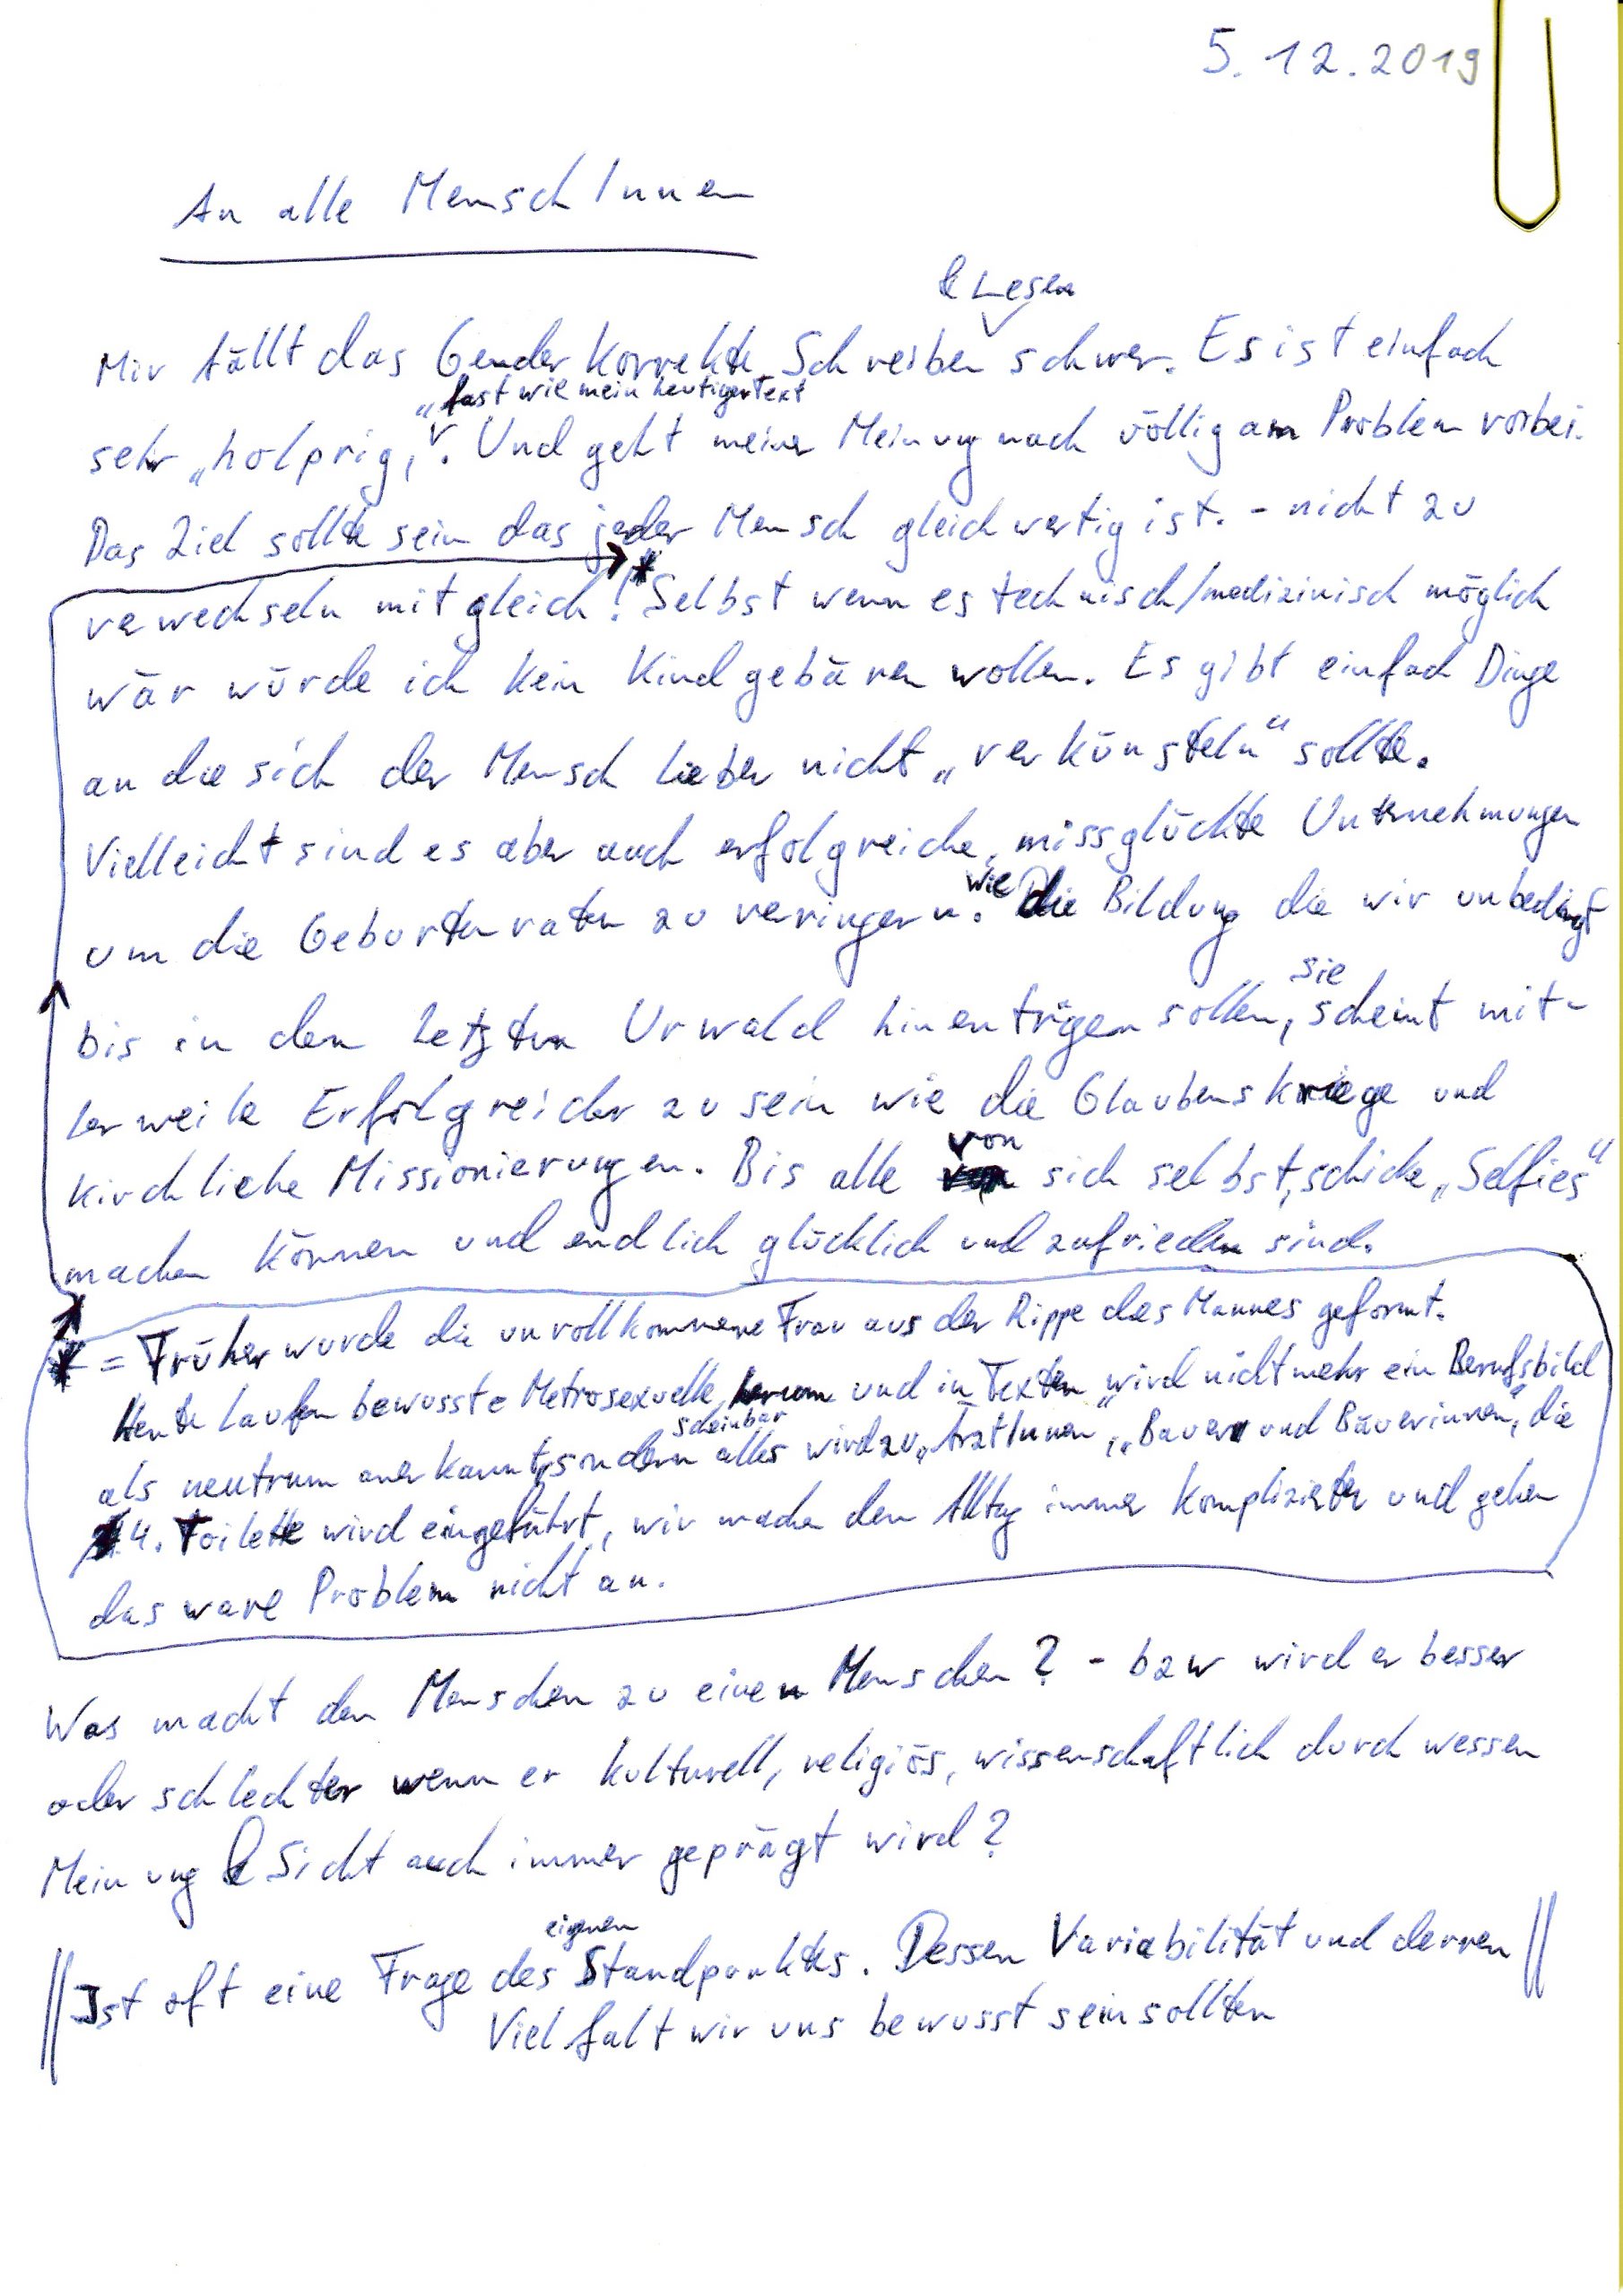 5.12.2019
An alle MenschInnen
& Lesen
Mir fällt das Gender korrekte Schreiben schwer. Es ist einfach
"fast wie mein heutiger Text
sehr „holprig,". Und geht meiner Meinung nach völlig am Problem vorbei.
Das Ziel sollte sein das jeder Mensch gleichwertig ist. - nicht zu
verwechseln mit gleich!* Selbst wenn es technisch/medizinisch möglich
wär würde ich kein Kind gebären wollen. Es gibt einfach Dinge
an die sich der Mensch lieber nicht „verkünsteln" sollte.
Vielleicht sind es aber auch erfolgreiche, missglückte Unternehmungen
um die Geburtenraten zu veringern. wie Die Bildung die wir unbedingt
sie
bis in den letzten Urwald hinentrügen sollen, scheint mit-
lerweile Erfolgreicher zu sein wie die Glaubenskriege und
von
kirchliche Missionierungen. Bis alle sich selbst, schicke „Selfies"
machen können und endlich glücklich und zufrieden sind.
* = Früher wurde die unvollkommene Frau aus der Rippe des Mannes geformt.
Heute laufen bewusste Metrosexuelle herum und in Texten wird nicht mehr ein Berufsbild
scheinbar
als neutrum anerkannt, sondern alles wird zu „ÄrztInnen", „Bauer und Bäuerinnen", die
4. Toilette wird eingeführt, wir machen den Alltag immer komplizierter und gehen
das ware Problem nicht an.
Was macht den Menschen zu einen Menschen? - bzw wird er besser
oder schlechter wenn er kulturell, religiös, wissenschaftlich durch wessen
Meinung & Sicht auch immer geprägt wird?
eigenen
|| Ist oft eine Frage des Standpunktes. Dessen Variabilität und derren ||
Vielfalt wir uns bewusst sein sollten